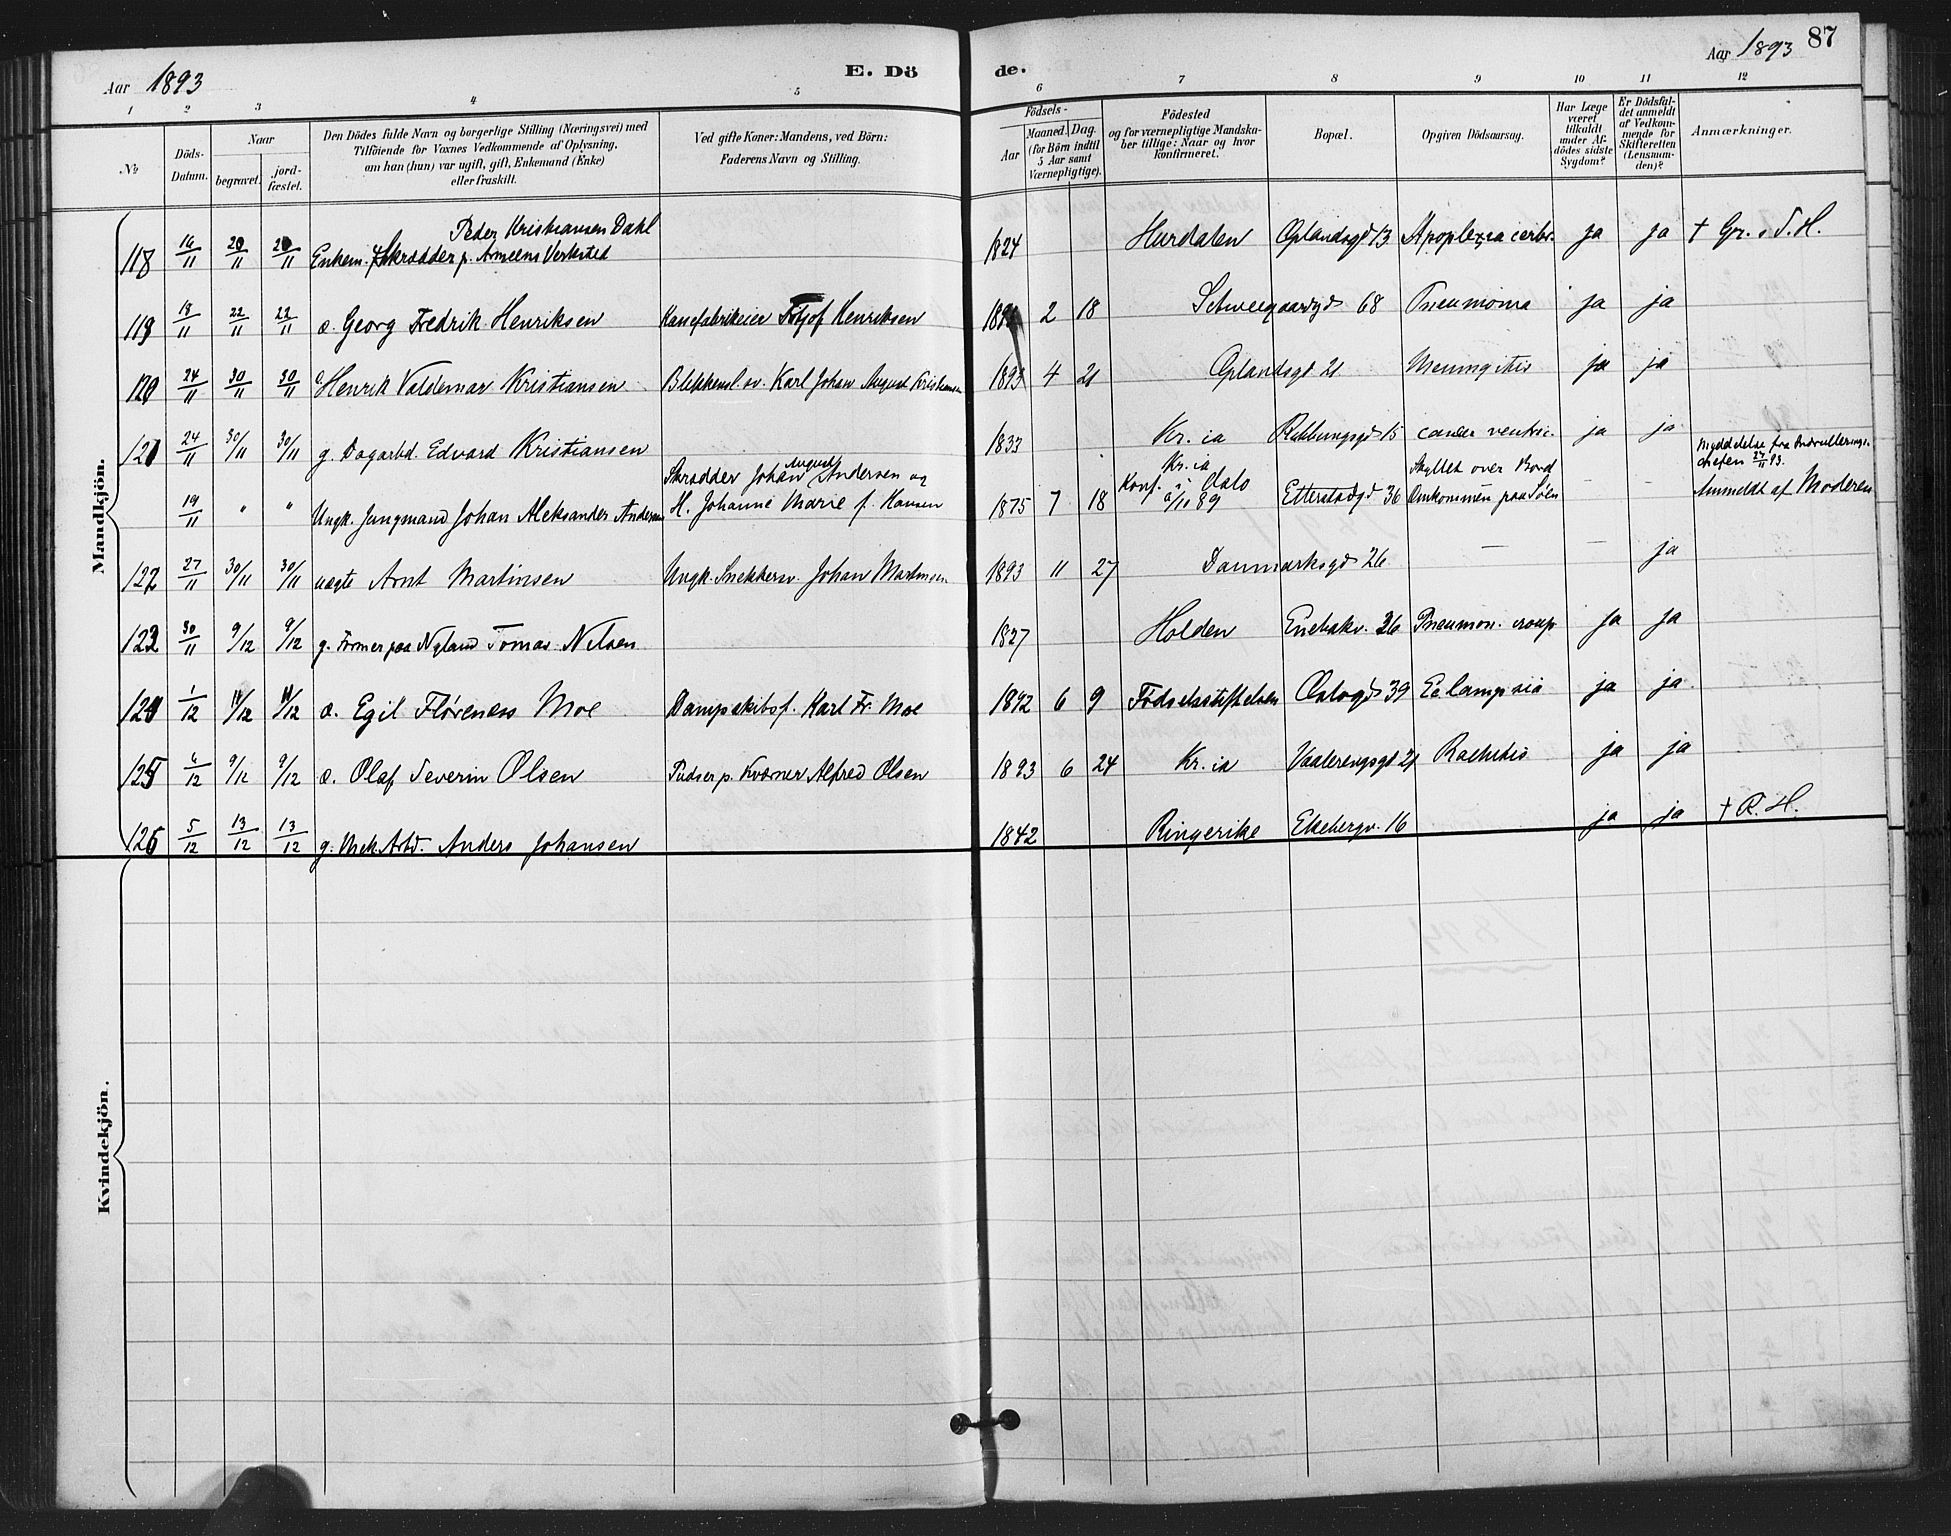 Aar 1893
E. Dö
de.
Aar 1893
87
1 2 3 4 5 6 7 8 9 10 11 12
№
Döds-Datum.
Naar
begravet.
jord-fæstet.
Den Dödes fulde Navn og borgerlige Stilling (Næringsvei) med
Tilföiende for Voxnes Vedkommende af Oplysning,
om han (hun) var ugift, gift, Enkemand (Enke)
eller fraskilt.
Ved gifte Koner: Mandens, ved Börn:
Faderens Navn og Stilling.
Födsels-
Aar
Maaned. Dag.
(for Börn indtil
5 Aar samt
Værnepligtige).
Födested
og for værnepligtige Mandska-
ber tillige: Naar og hvor
konfirmeret.
Bopæl.
Opgiven Dödsaarsag.
Har Læge
været
tilkaldt
under Af-
dödes sidste
Sygdom?
Er Dödsfal-
det anmeldt
af Vedkom-
mende for
Skifteretten
(Lensman-
den)?
Anmærkninger.
Mandkjön.
118 16/11 20/11 20/11 Enkem. Skrædder p. Armeens Verksted Peder Kristiansen Dahl 1824 Hurdalen Oplandsgd 13 Apoplexia cerbr. ja ja † Gr. s. S. H.
119 18/11 22/11 22/11 æ. Georg Fredrik Henriksen Fritjof Henriksen 2 18 Schweegaardsgd 68 Pneumonia ja ja
120 24/11 30/11 30/11 Henrik Valdemar Kristiansen Blikkensl. sv. Karl Johan August Kristiansen 1893 4 21 Oplandsgd 21 Meningitis ja ja
121 24/11 30/11 30/11 g. Dagarbd. Edvard Kristiansen 1833 Kr. ia Rubbungsgd 15 cancer ventric. ja ja
19/11 " " Ungk. Jungmand Johan Aleksander Andersen Skrædder Johan August Andersen og
H. Johanne Marie f. Hansen 1875 7 18 Kr. ia
Konf. i Oslo
6/10 89 Etterstadgd 36 Skyllet over Bord
Omkommen paa Söen — — Meddelelse fra Indrullerings-
chefen 27/11 93.
Anmeldt af Moderen
122 27/11 30/11 30/11 uægte Arnt Martinsen Ungk. Snekkersv. Johan Martinsen 1893 11 27 Danmarksgd 26 — — ja
123 30/11 9/12 9/12 g. Former paa Nyland Tomas Nilsen 1827 Holden Enebakv. 26 Pneumon. croup ja ja
124 1/12 11/12 11/12 æ. Egil Floreness Moe Dampskibsf. Karl Fr. Moe 1892 6 9 Födselsstiftelsen Oslogd 39 Eclampsia ja ja
125 6/12 9/12 9/12 æ. Olaf Severin Olsen Pudser p. Kværner Alfred Olsen 1893 6 24 Kr. ia Vaalerengsgd 21 Rachitis ja ja
126 5/12 13/12 13/12 g. Mek. Arbd. Anders Johansen 1842 Ringerike Ekebergv. 16 ja ja † R. H.
Kvindekjön.